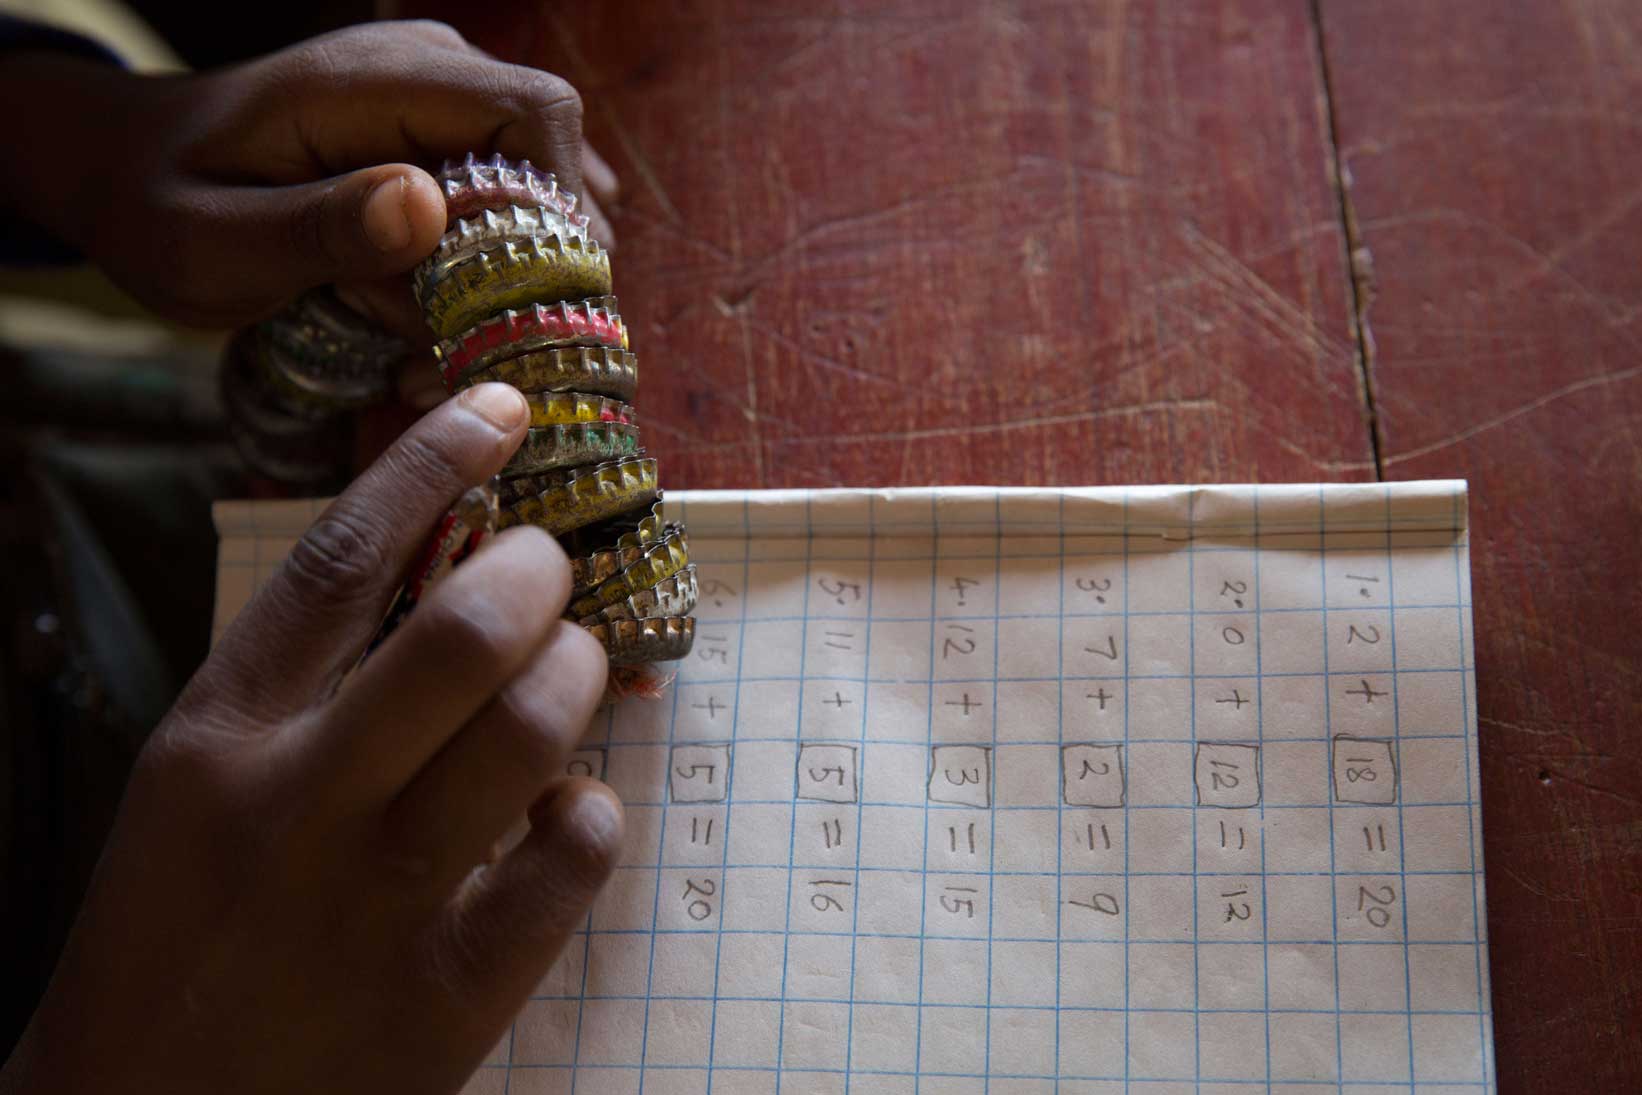 1. 2 + 18 = 20
2. 0 + 12 = 12
3. 7 + 2 = 9
4. 12 + 3 = 15
5. 11 + 5 = 16
6. 15 + 5 = 20